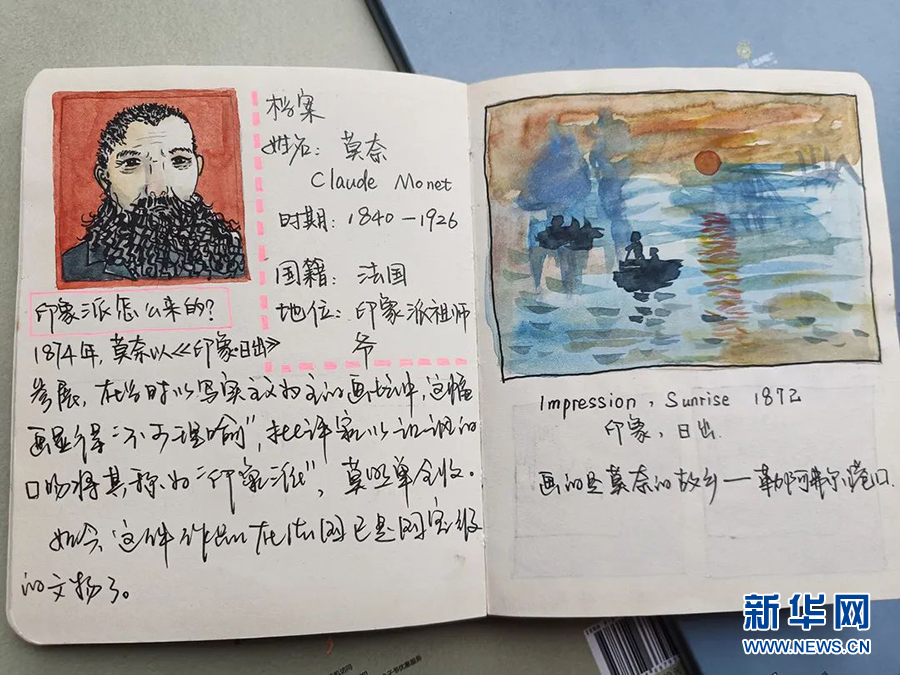 档案
姓名：莫奈
Claude Monet
时期：1840－1926
国籍：法国
地位：印象派祖师
爷
印象派怎么来的？
1874年，莫奈以《印象·日出》
参展，在当时以写实主义为主的画坛中，这幅
画显得“不可理喻”，批评家以讥讽的
口吻将其称为“印象派”，莫照单全收。
如今，这件作品在法国已是国宝级
的文物了。
Impression，Sunrise 1872
印象，日出.
画的是莫奈的故乡－勒阿弗尔港口.
新华网
WWW.NEWS.CN